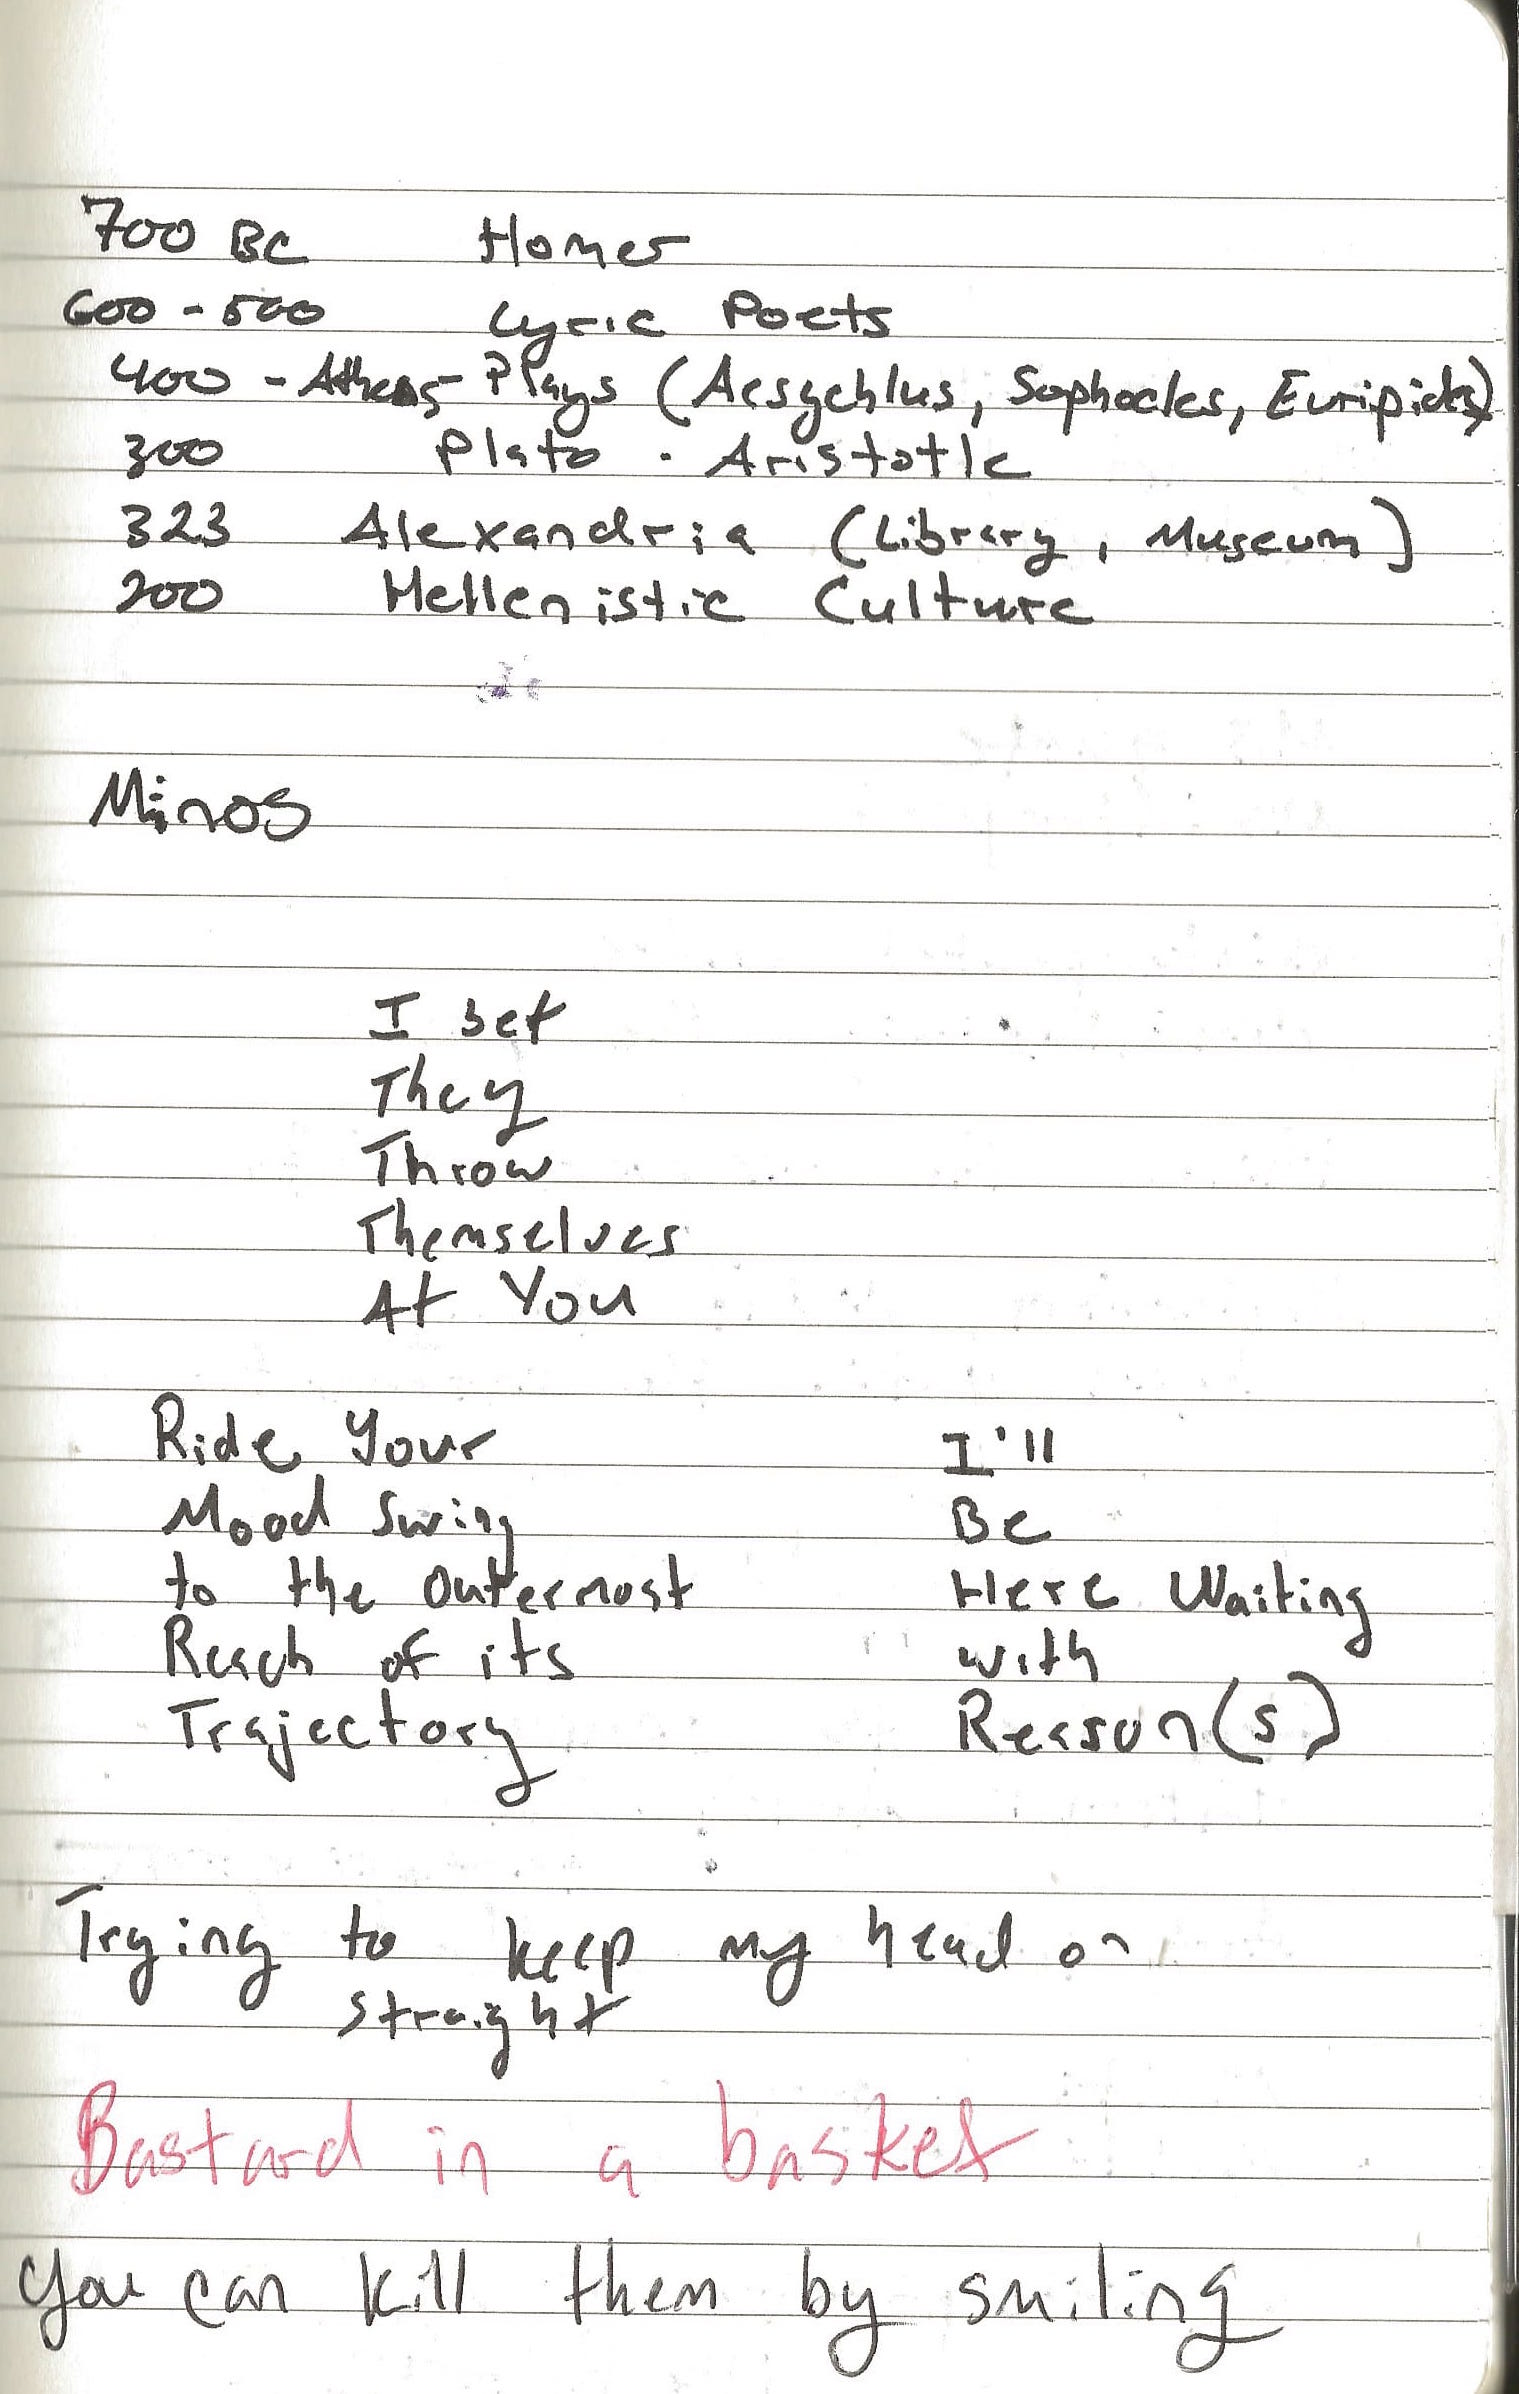 700 BC Homer
600 - 500 Lyric Poets
400 - Athens - Plays (Aesychlus, Sophocles, Euripides)
300 Plato - Aristotle
323 Alexandria (Library, Museum)
200 Hellenistic Culture
Minos
I bet
They
Throw
Themselves
At You
Ride Your
Mood Swing
to the Outermost
Reach of its
Trajectory
I'll
Be
Here Waiting
with
Reason(s)
Trying to keep my head on
straight
Bastard in a basket
You can kill them by smiling